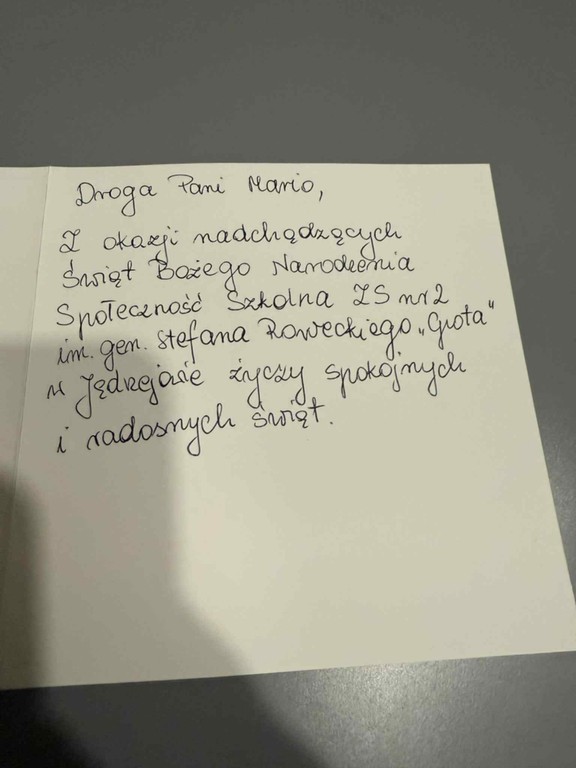 Droga Pani Mario,
Z okazji nadchędzących
Świąt Bożego Narodzenia
Społeczność Szkolna ZS nr 2
im. gen. Stefana Roweckiego „Grota"
w Jędrzejowie życzy spokojnych
i radosnych świąt.